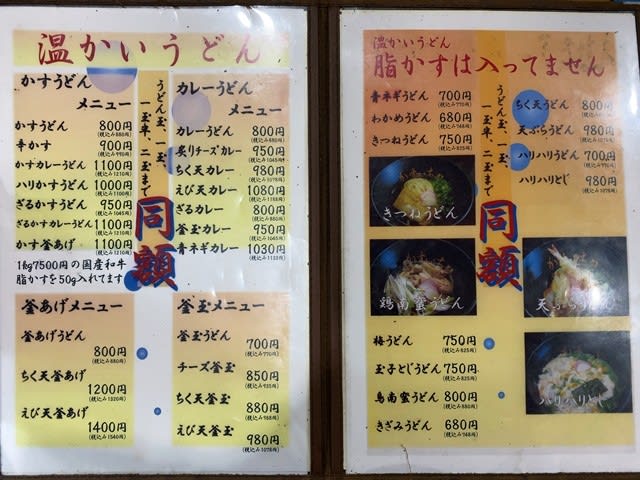 温かいうどん
かすうどん
メニュー
かすうどん 800円
(税込み880円)
辛かす 900円
(税込み990円)
かすカレーうどん 1100円
(税込み1210円)
ハリかすうどん 1000円
(税込み1100円)
ざるかすうどん 950円
(税込み1045円)
ざるかすカレーうどん 1100円
(税込み1210円)
かす釜あげ 1100円
(税込み1210円)
1kg7500円の国産和牛
脂かすを50g入れてます
うどん玉、一玉、
一玉半、二玉まで
同額
カレーうどん
メニュー
カレーうどん 800円
(税込み880円)
炙りチーズカレー 950円
(税込み1045円)
ちく天カレー 980円
(税込み1078円)
えび天カレー 1080円
(税込み1188円)
ざるカレー 800円
(税込み880円)
釜玉カレー 950円
(税込み1045円)
青ネギカレー 1030円
(税込み1133円)
釜あげメニュー
釜あげうどん
800円
(税込み880円)
ちく天釜あげ
1200円
(税込み1320円)
えび天釜あげ
1400円
(税込み1540円)
釜玉メニュー
釜玉うどん
700円
(税込み770円)
チーズ釜玉
850円
(税込み935円)
ちく天釜玉
880円
(税込み968円)
えび天釜玉
980円
(税込み1078円)
温かいうどん
脂かすは入ってません
青ネギうどん 700円
(税込み770円)
わかめうどん 680円
(税込み748円)
きつねうどん 750円
(税込み825円)
きつねうどん
鶏南蛮うどん
うどん玉、一玉、
一玉半、二玉まで
同額
ちく天うどん 800円
(税込み880円)
天ぷらうどん 980円
(税込み1078円)
ハリハリうどん 700円
(税込み770円)
ハリハリとじ 980円
(税込み1078円)
天ぷらうどん
ハリハリとじ
梅うどん 750円
(税込み825円)
玉子とじうどん 750円
(税込み825円)
鳥南蛮うどん 800円
(税込み880円)
きざみうどん 680円
(税込み748円)